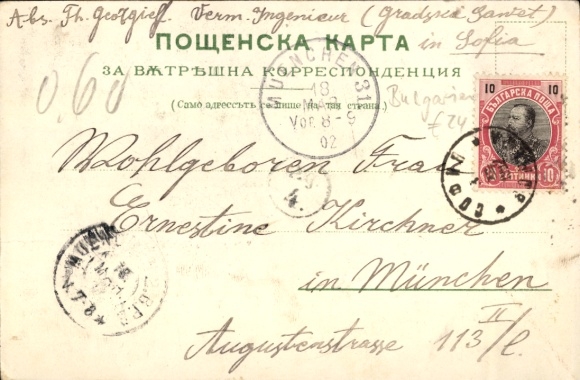 Abs. Th. Georgieff Verm. Ingenieur (Gradska Sawet)
in Sofia
ПОЩЕНСКА КАРТА
ЗА ВѪТРѢШНА КОРРЕСПОНДЕНЦИЯ
(Само адрессътъ се пише на тая страна.)
0.60
MUENCHEN 31
18
MAR
Vor. 8-9
02
Bulgarien
£ 24
10 10
БЪЛГАРСКА ПОЩА
10
4.
Wohlgeboren Frau
Ernestine Kirchner
in München
Augustenstrasse 113 II/l.